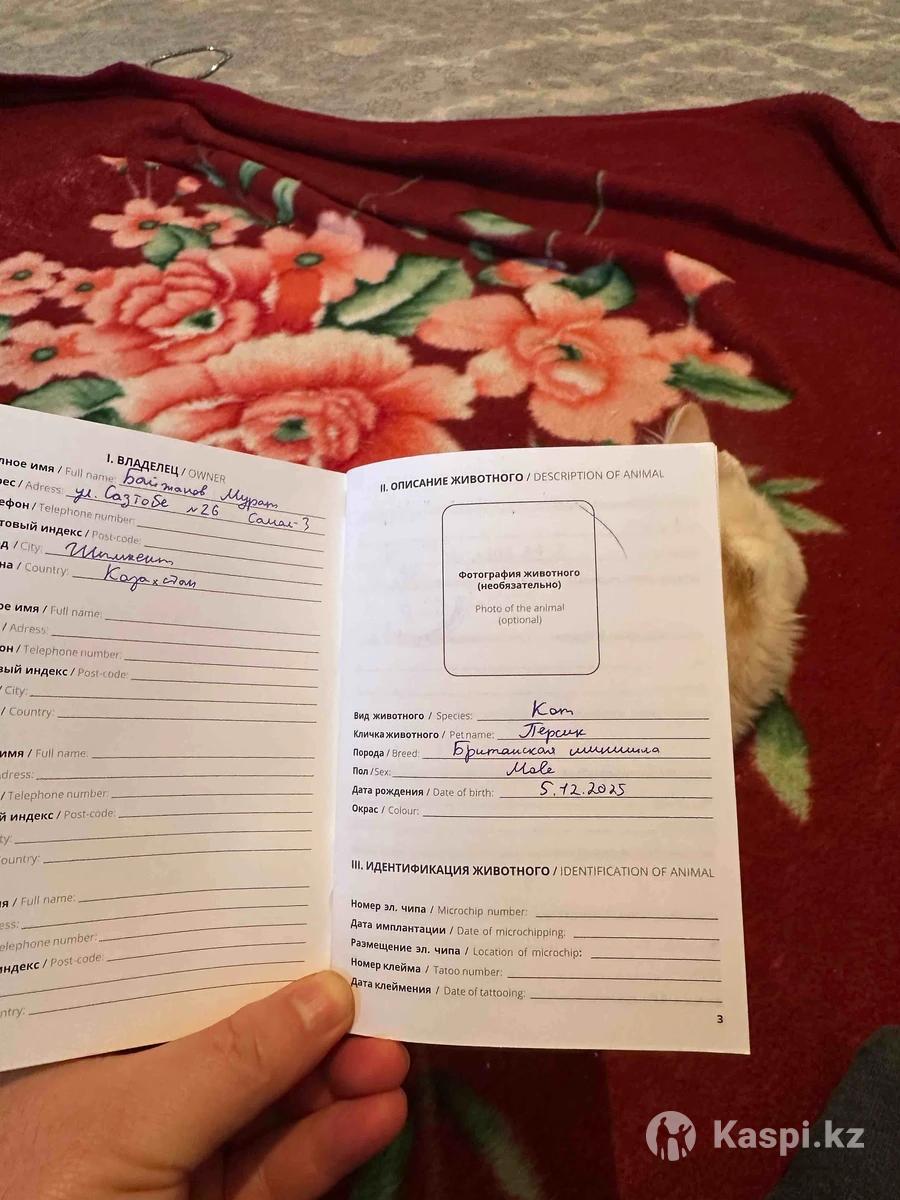 I. ВЛАДЕЛЕЦ / OWNER
лное имя / Full name: Байжанов Мурат
рес / Adress: ул. Сазтобе №26 Самал-3
ефон / Telephone number:
товый индекс / Post-code:
д / City: Шымкент
на / Country: Казахстан
ое имя / Full name:
/ Adress:
он / Telephone number:
вый индекс / Post-code:
/ City:
/ Country:
имя / Full name:
dress:
/ Telephone number:
й индекс / Post-code:
ty:
ountry:
я / Full name:
ess:
elephone number:
ндекс / Post-code:
ntry:
II. ОПИСАНИЕ ЖИВОТНОГО / DESCRIPTION OF ANIMAL
Фотография животного
(необязательно)
Photo of the animal
(optional)
Вид животного / Species: Кот
Кличка животного / Pet name: Персик
Порода / Breed: Британская шиншила
Пол /Sex: Male
Дата рождения / Date of birth: 5.12.2025
Окрас / Colour:
III. ИДЕНТИФИКАЦИЯ ЖИВОТНОГО / IDENTIFICATION OF ANIMAL
Номер эл. чипа / Microchip number:
Дата имплантации / Date of microchipping:
Размещение эл. чипа / Location of microchip:
Номер клейма / Tatoo number:
Дата клеймения / Date of tattooing:
3
Kaspi.kz